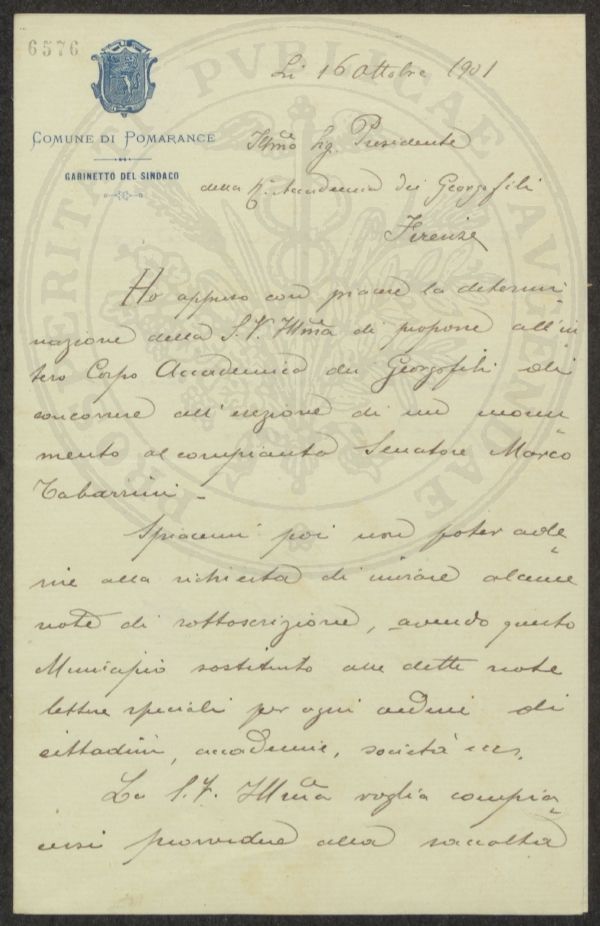 6576
Lì 16 Ottobre 1901
COMUNE DI POMARANCE
GABINETTO DEL SINDACO
Illmo Sig. Presidente
della R. Accademia dei Georgofili
Firenze
Ho appreso con piacere la determi
nazione della S. V. Illma di proporre all'in
tero Corpo Accademico dei Georgofili di
concorrere all'erezione di un monu
mento al compianto Senatore Marco
Tabarrini.
Spiacemi poi non poter ade
rire alla richiesta di inviare alcune
note di sottoscrizione, avendo questo
Municipio sostituito alle dette note
lettere speciali per ogni ordine di
cittadini, accademie, società ecc.
La S. V. Illma voglia compia
cersi provvedere alla raccolta
PVBLICAE
AVGENDAE